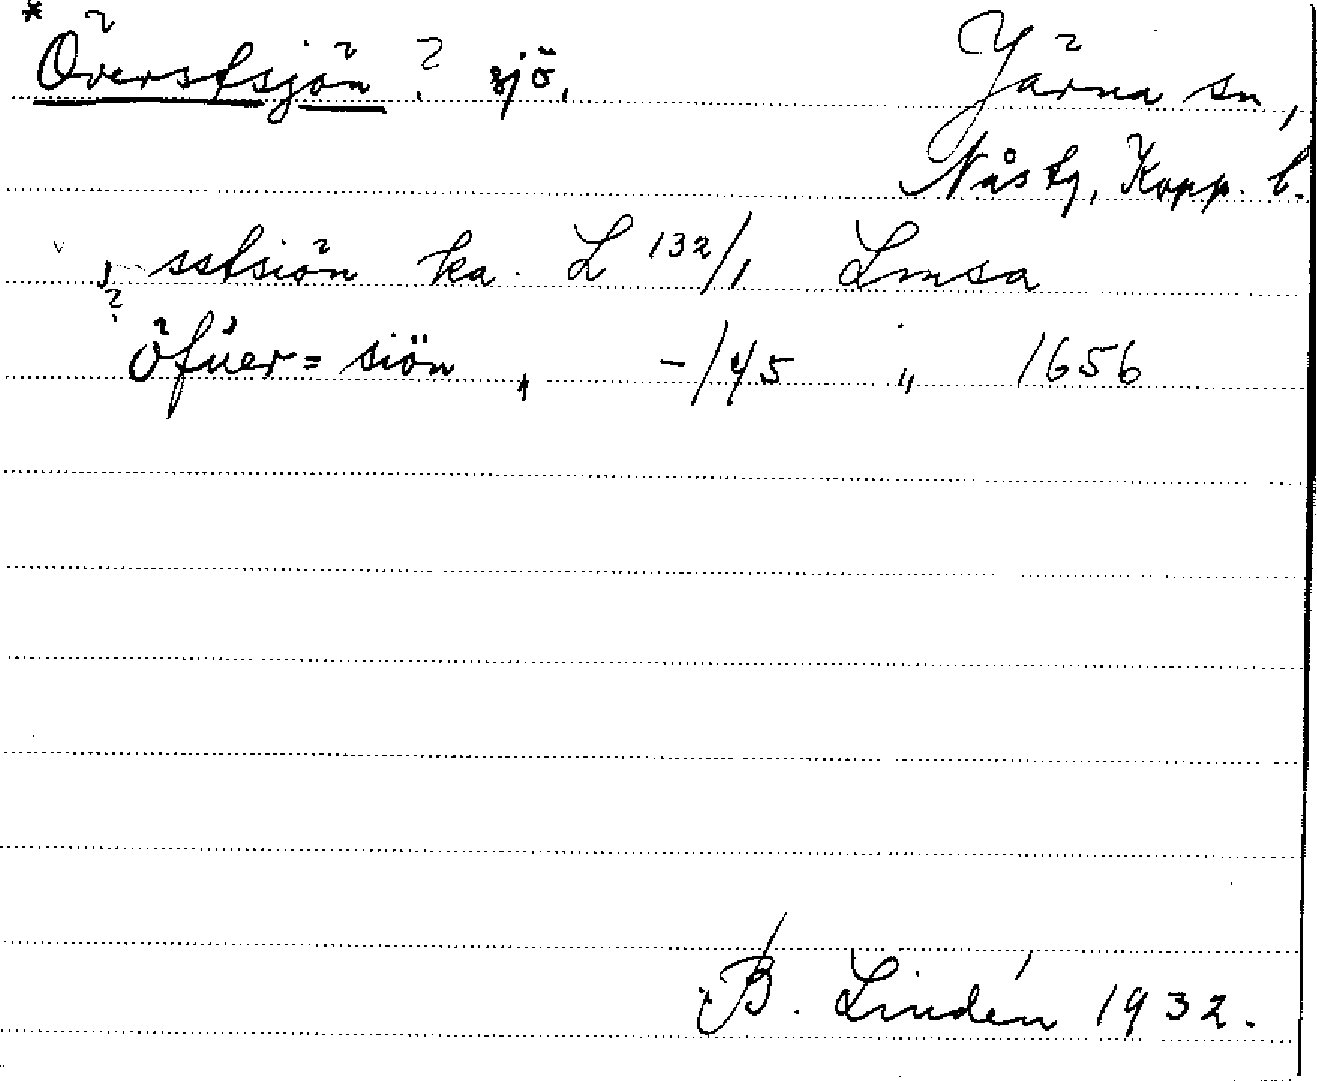 *Överstsjön ? sjö. Järna sn,
Nås tg, Kopp. l.
sstsiön ka. L 132/1 Lmsa
? öfüer= siön " -/45 " 1656
B. Lindén 1932.